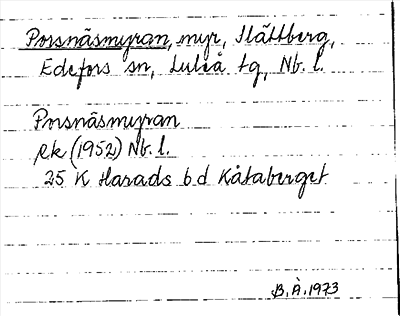 Porsnäsmyran, myr, Slättberg,
Edefors sn, Luleå tg, Nb. l.
Porsnäsmyran
Rk (1952) Nb. l.
25 K Harads b d Kåtaberget
B. Å. 1973